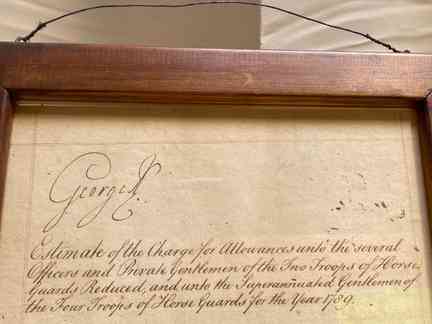 George R.
Estimate of the Charge for Allowances unto the several
Officers and Private Gentlemen of the Two Troops of Horse
Guards Reduced, and unto the Superannuated Gentlemen of
the Four Troops of Horse Guards for the Year 1789.